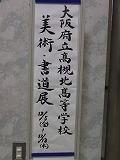 大阪府立高槻北高等学校
美術・書道展